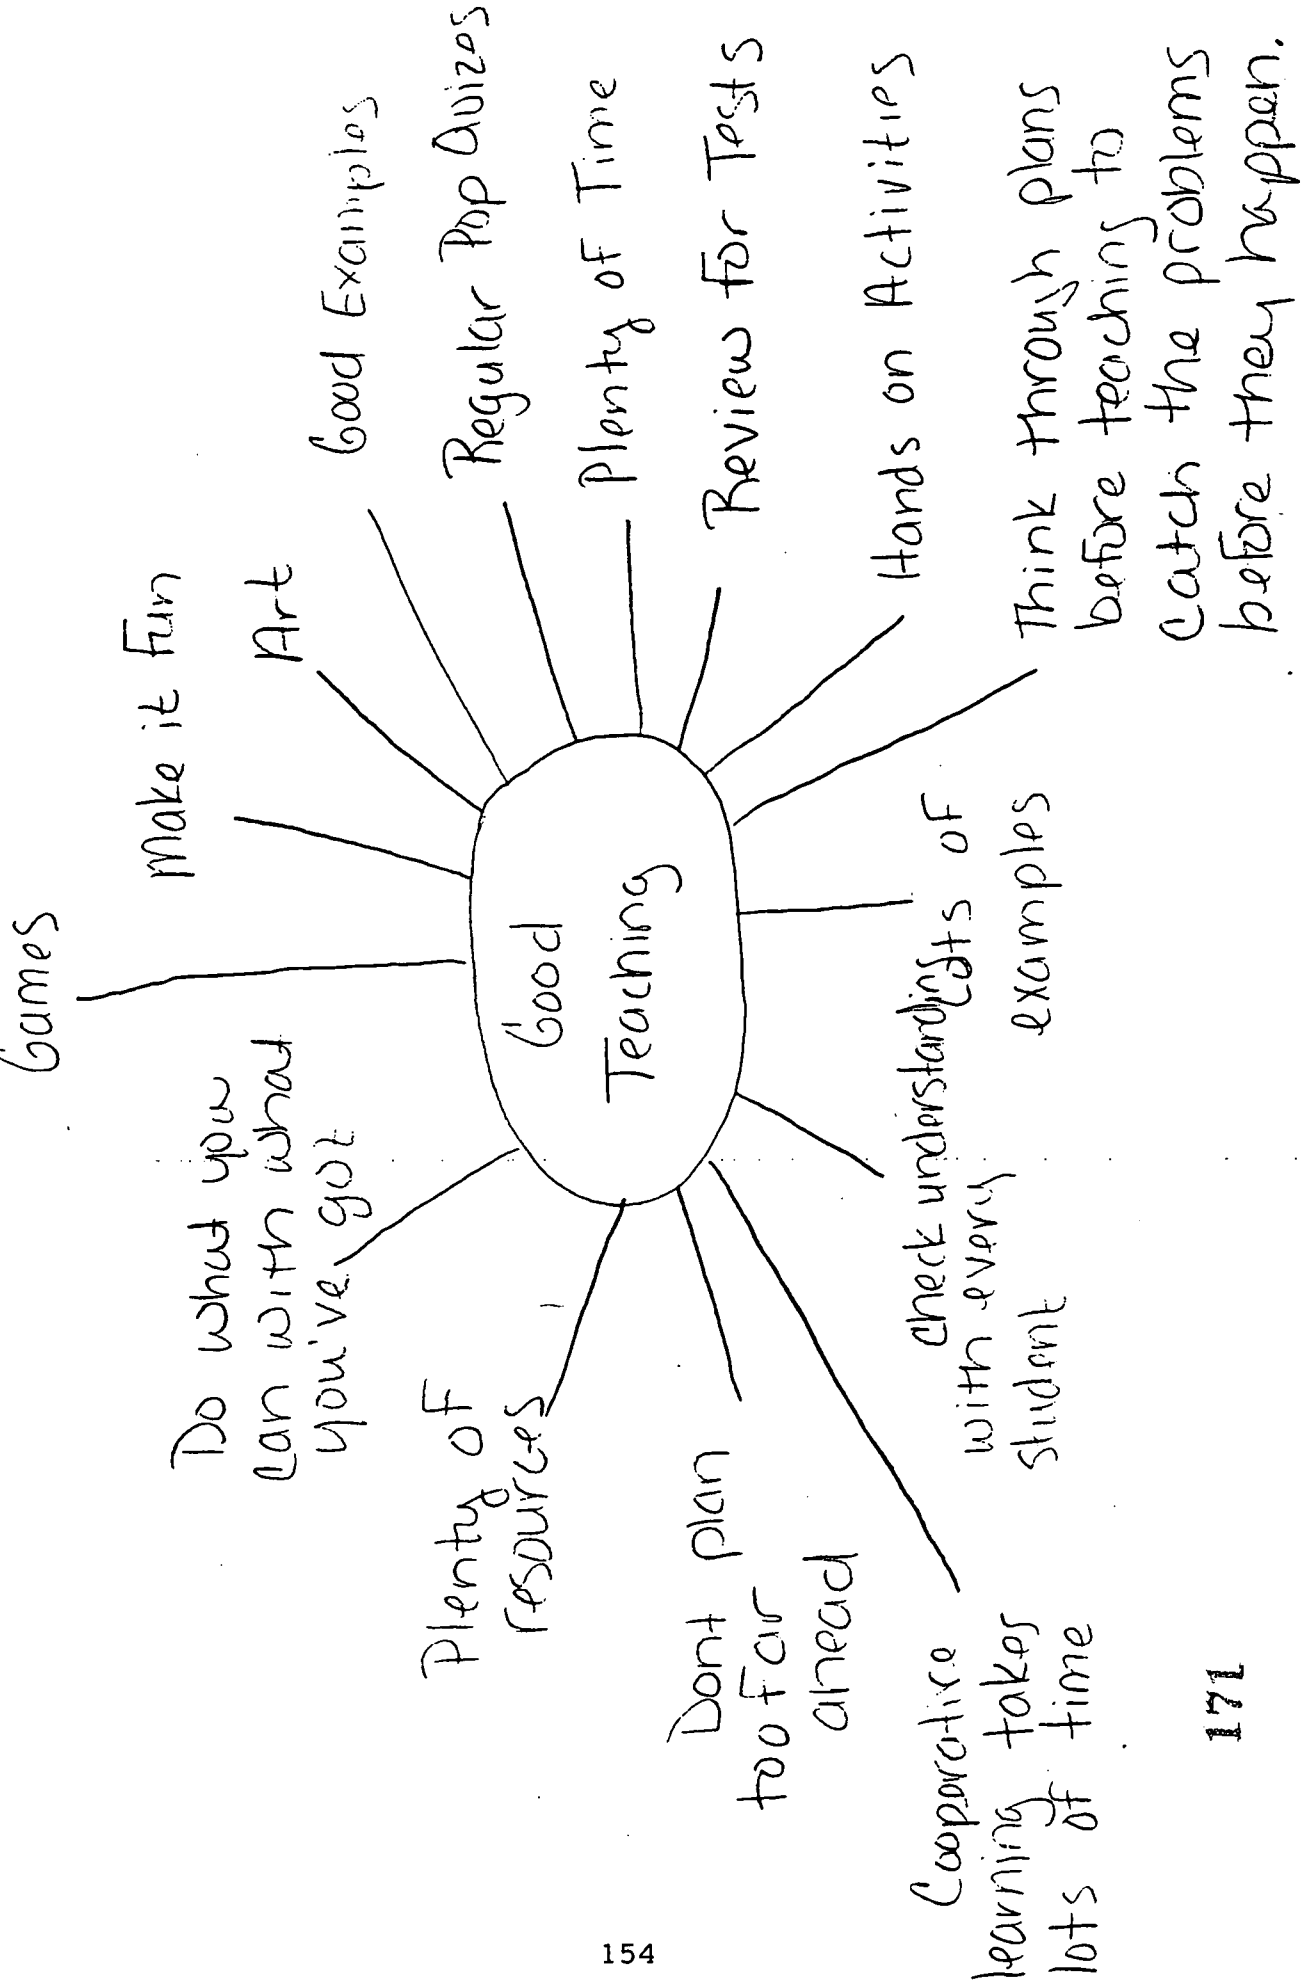 Games
make it fun
Art
Good Examples
Regular Pop Quizes
Plenty of Time
Review for Tests
Hands on Activities
Think through plans
before teaching to
catch the problems
before they happen.
Lots of
examples
check understanding
with every
student
Cooperative
learning takes
lots of time
Dont plan
too far
ahead
Plenty of
resources
Do what you
can with what
you've got
Good
Teaching
171
154